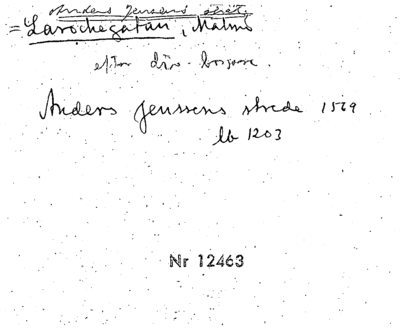 Anders Jensens strät
= Larochegatan, Malmö
efter
Anders Jenssens strede 1569
lb 1203
Nr 12463